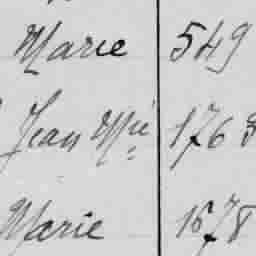 Marie 549
Jean Mie 1768
Marie 1678